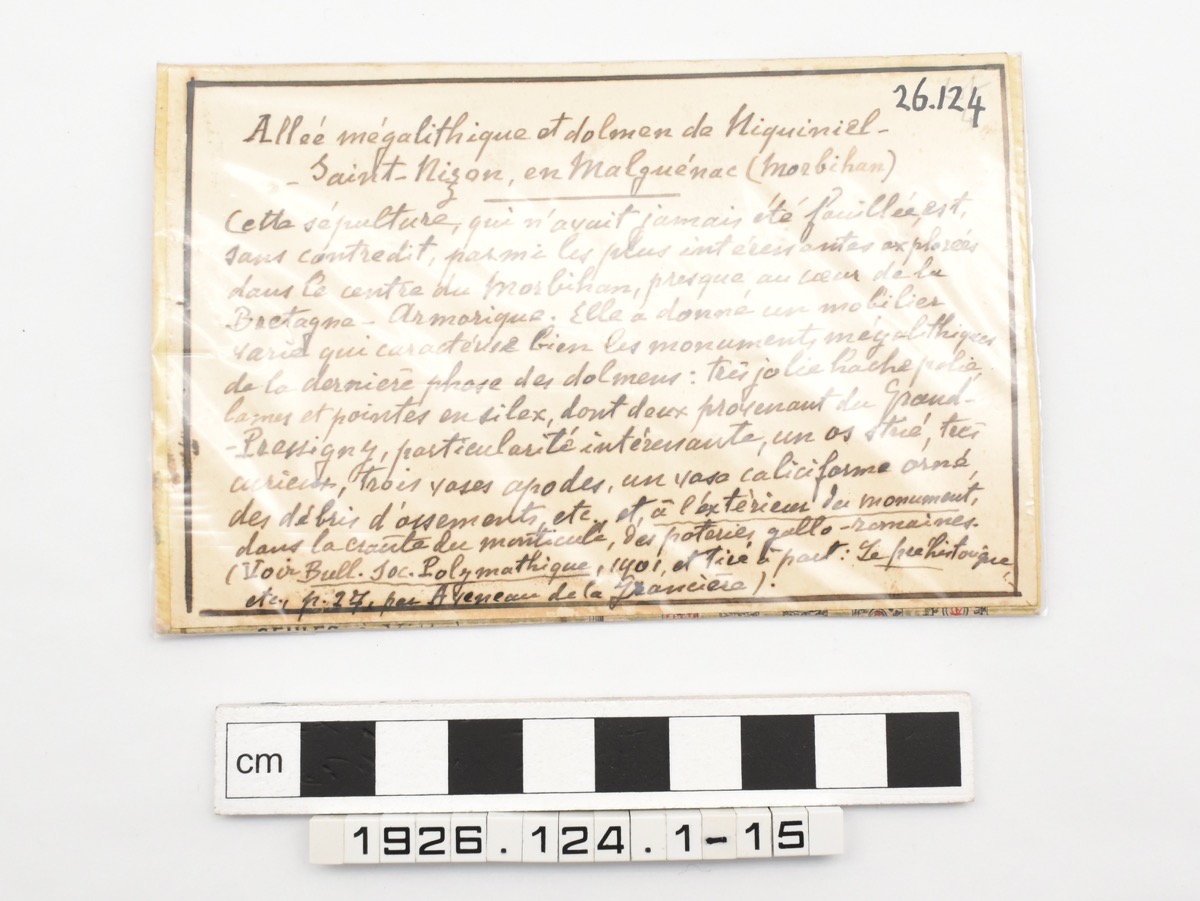 26.124
Alleé mégalithique et dolmen de Niquiniel-
- Saint-Nizon, en Malguénac (Morbihan)
Cette sépulture, qui n'avait jamais été fouillée, est,
sans contredit, parmi les plus intéressantes explorées
dans le centre du Morbihan, presque au cœur de la
Bretagne - Armorique. Elle a donné un mobilier
varié qui caractérise bien les monuments mégalithiques
de la dernière phase des dolmens : très jolie hache polie,
lames et pointes en silex, dont deux provenant du Grand-
-Pressigny, particularité intéressante, un os strié, très
curieux, trois vases apodes, un vase caliciforme orné,
des débris d'ossements, etc., et, à l'extérieur du monument,
dans la croûte du monticule, des poteries gallo-romaines.
(Voir Bull. Soc. Polymathique, 1901, et tiré à part : Le préhistorique,
etc, p. 27, par Aveneau de la Grancière).
cm
1926.124.1-15